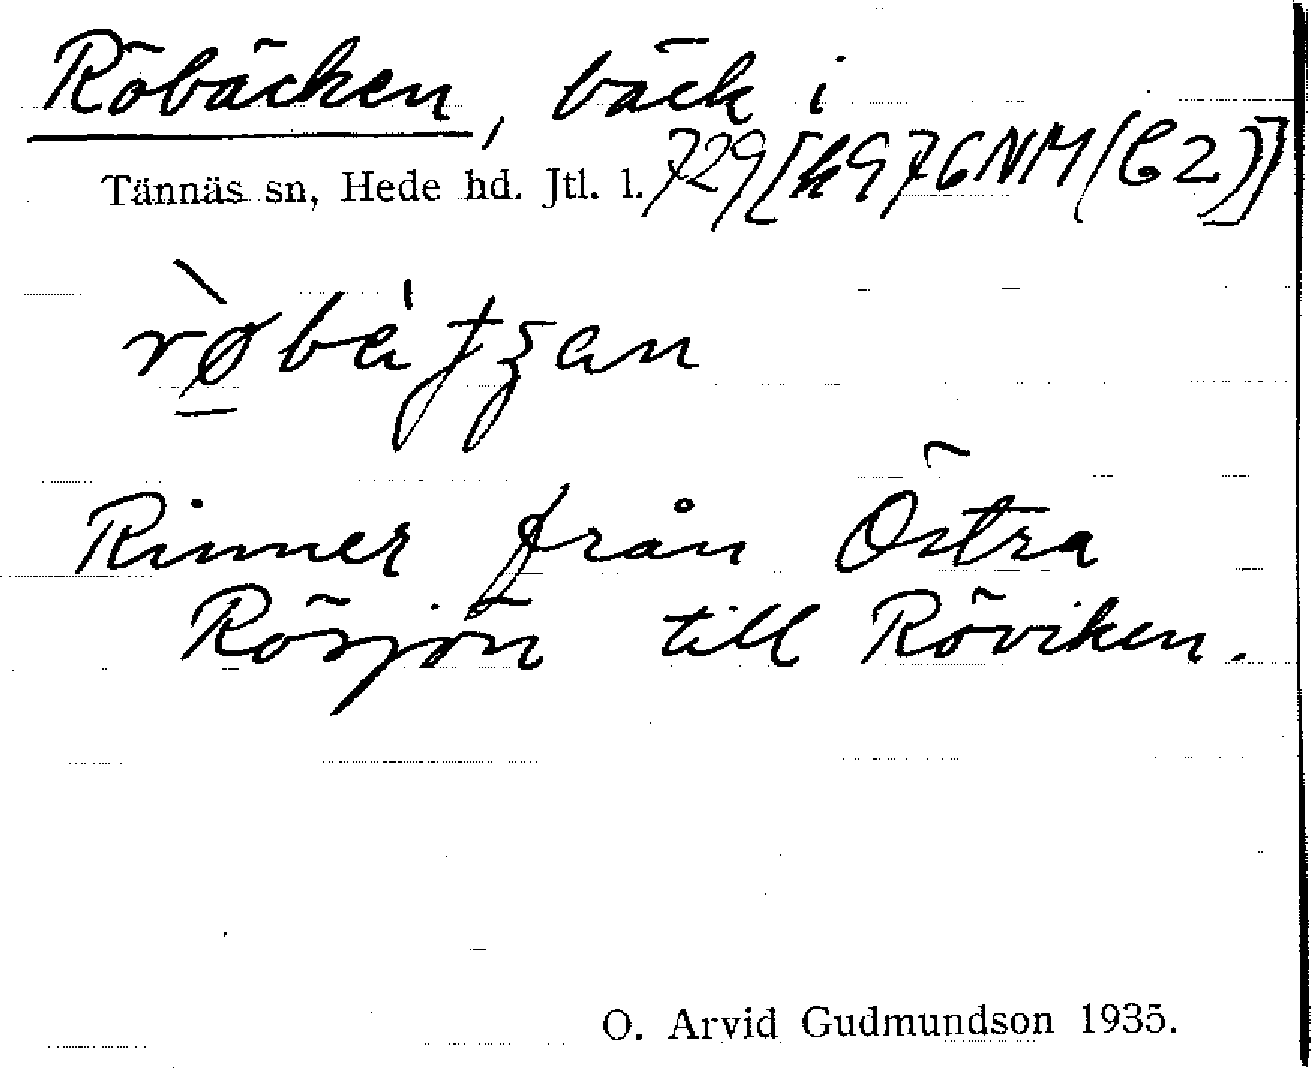 Röbäcken, bäck i
Tännäs sn, Hede hd. Jtl. l. 729[k976NM(C2)]
Rinner från Östra
Rösjön till Röviken.
O. Arvid Gudmundson 1935.